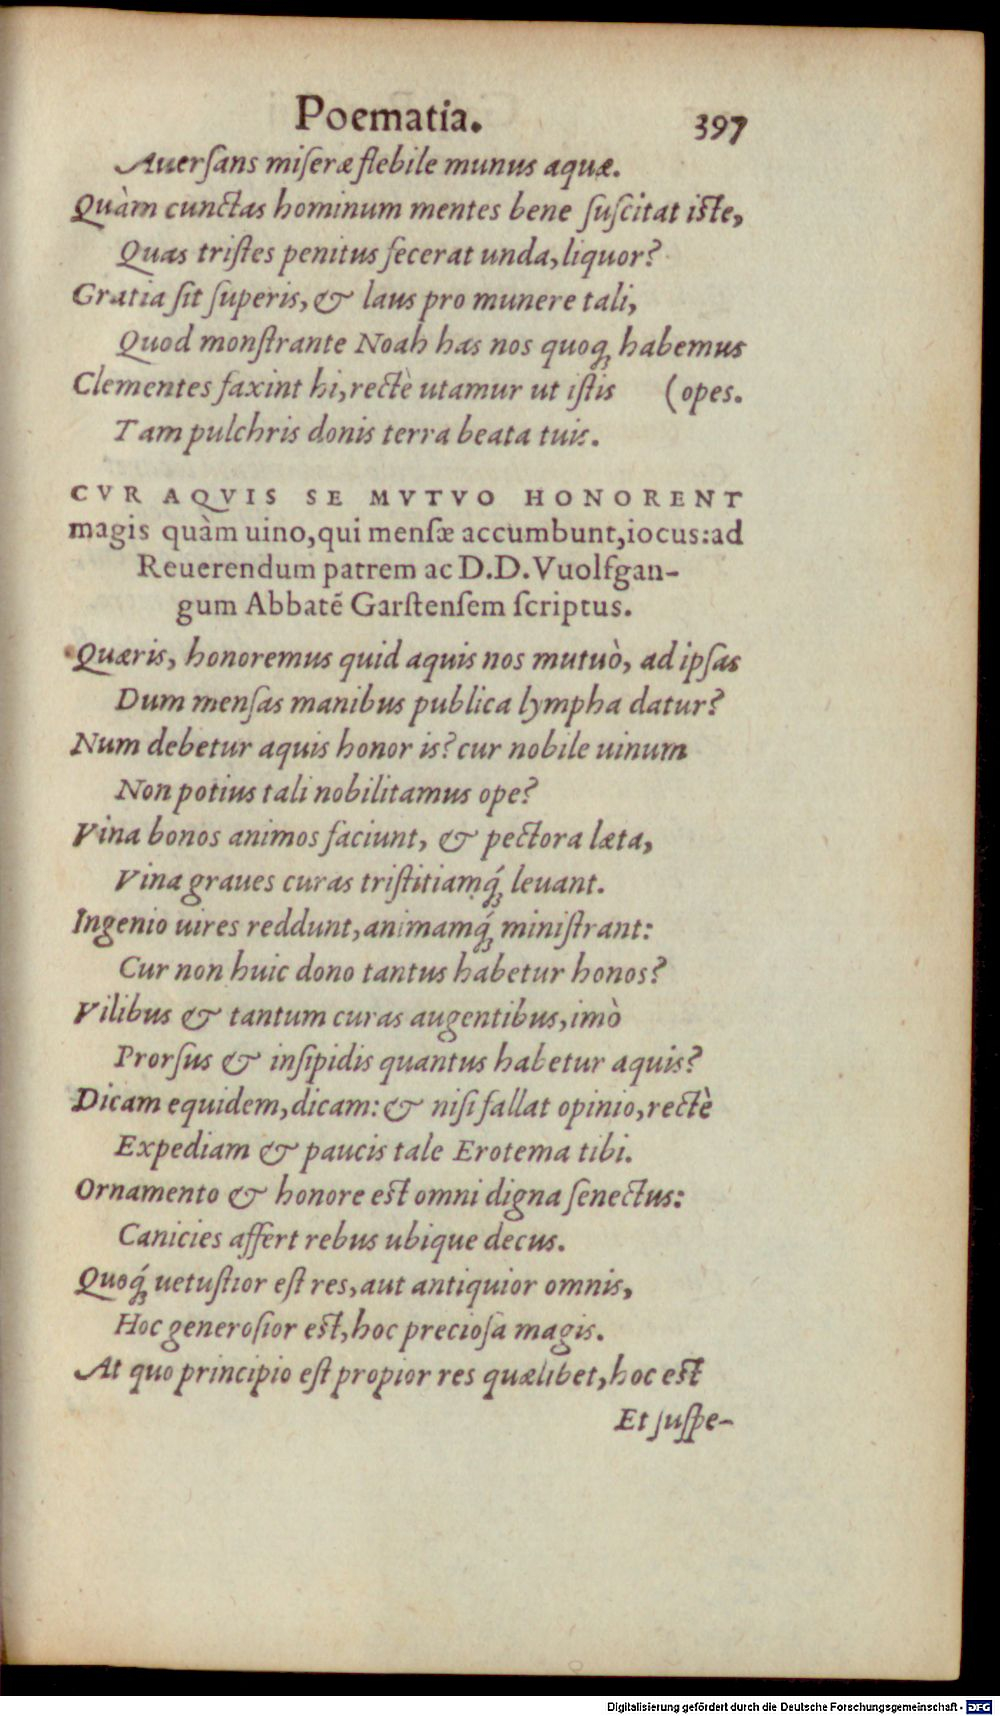 Poematia. 397
Auerſans miſeræ flebile munus aquæ.
Quàm cunctas hominum mentes bene ſuſcitat iſte,
Quas triſtes penitus fecerat unda, liquor?
Gratia ſit ſuperis, & laus pro munere tali,
Quod monſtrante Noah has nos quoq; habemus
Clementes faxint hi, rectè utamur ut iſtis (opes.
Tam pulchris donis terra beata tuis.
CVR AQVIS SE MVTVO HONORENT
magis quàm uino, qui menſæ accumbunt, iocus: ad
Reuerendum patrem ac D. D. Vuolfgan-
gum Abbatē Garſtenſem ſcriptus.
Quæris, honoremus quid aquis nos mutuò, ad ipſas
Dum menſas manibus publica lympha datur?
Num debetur aquis honor is? cur nobile uinum
Non potius tali nobilitamus ope?
Vina bonos animos faciunt, & pectora læta,
Vina graues curas triſtitiamq́; leuant.
Ingenio uires reddunt, animamq́; miniſtrant:
Cur non huic dono tantus habetur honos?
Vilibus & tantum curas augentibus, imò
Prorſus & inſipidis quantus habetur aquis?
Dicam equidem, dicam: & niſi fallat opinio, rectè
Expediam & paucis tale Erotema tibi.
Ornamento & honore eſt omni digna ſenectus:
Canicies affert rebus ubique decus.
Quoq́; uetuſtior eſt res, aut antiquior omnis,
Hoc generoſior eſt, hoc precioſa magis.
At quo principio eſt propior res quælibet, hoc eſt
Et ſuſpe-
Digitalisierung gefördert durch die Deutsche Forschungsgemeinschaft - DFG